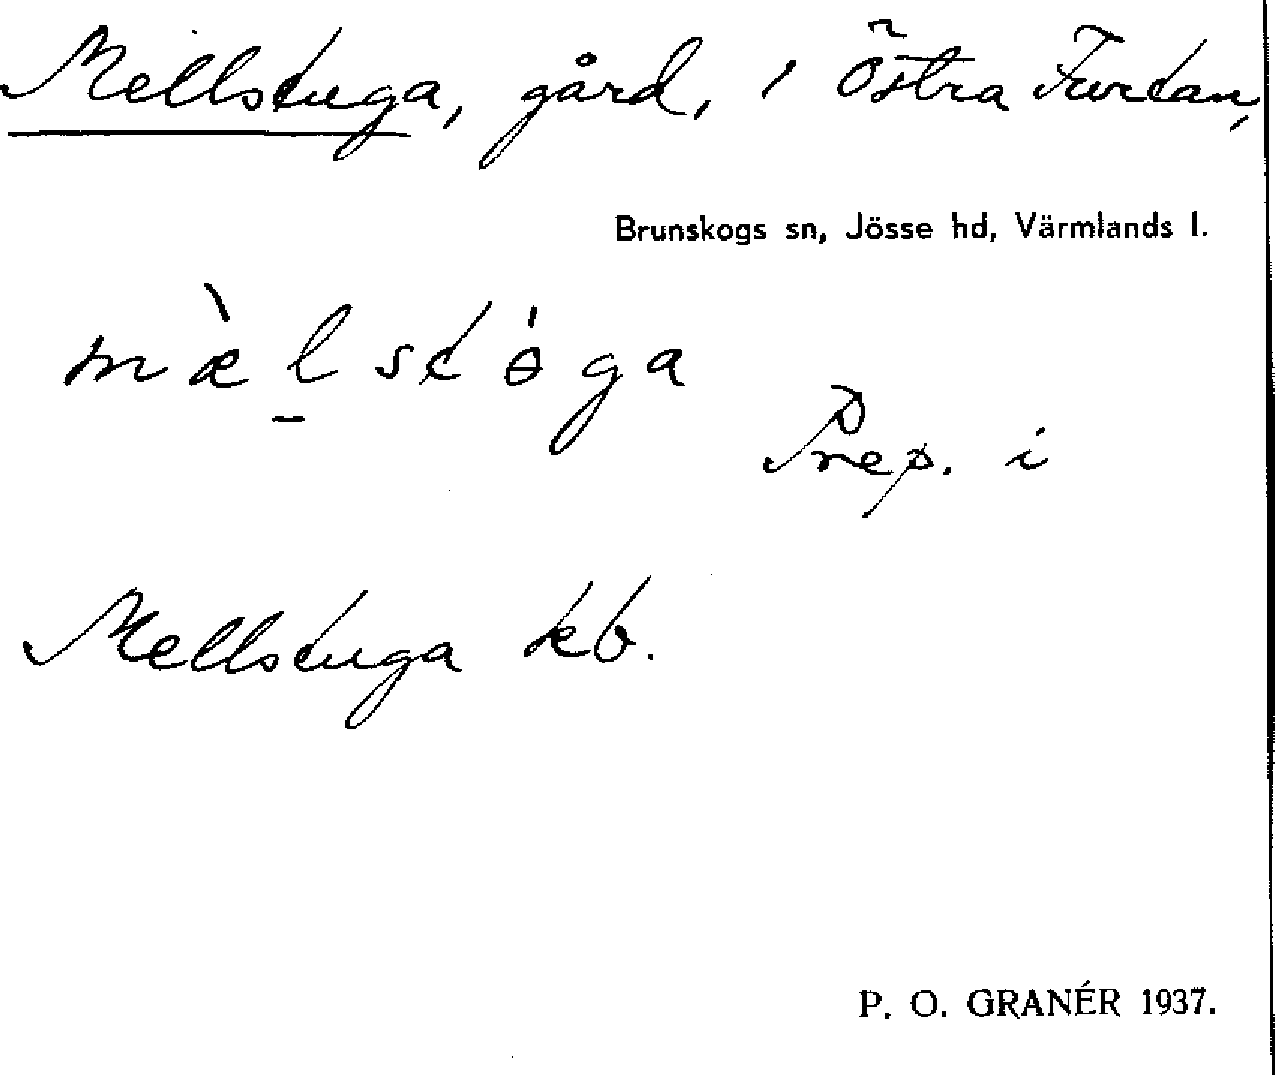 Mellstuga, gård, i Östra Furtan,
Brunskogs sn, Jösse hd, Värmlands l.
mæ̀l̠stɵ́ga
Prep. i
Mellstuga kb.
P. O. GRANÉR 1937.